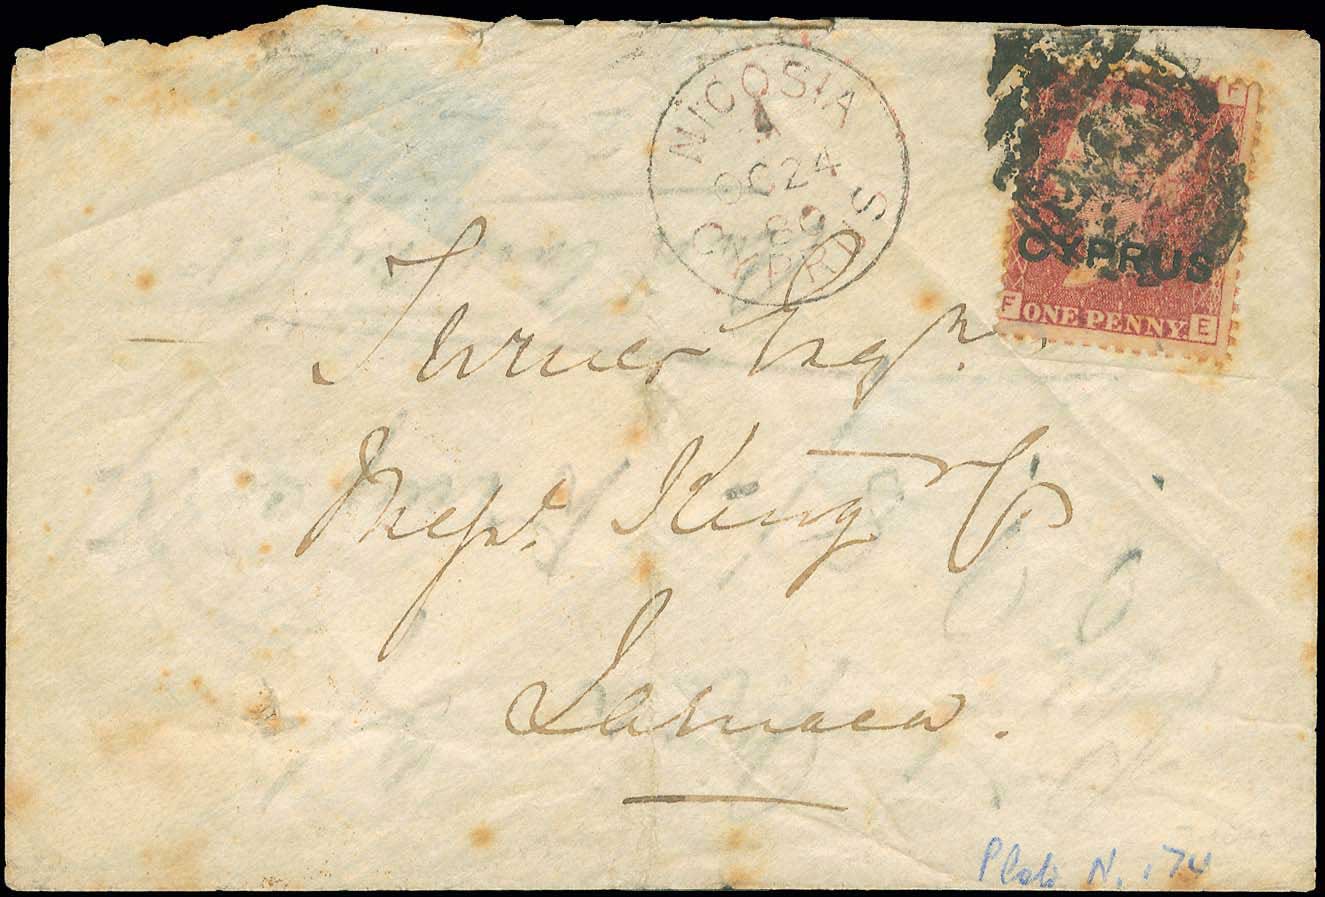 NICOSIA
A
OC 24
80
CYPRUS
F
CYPRUS
F ONE PENNY E
Turner Esqr.
Messrs. King & Co
Larnaca.
Plate N. 174